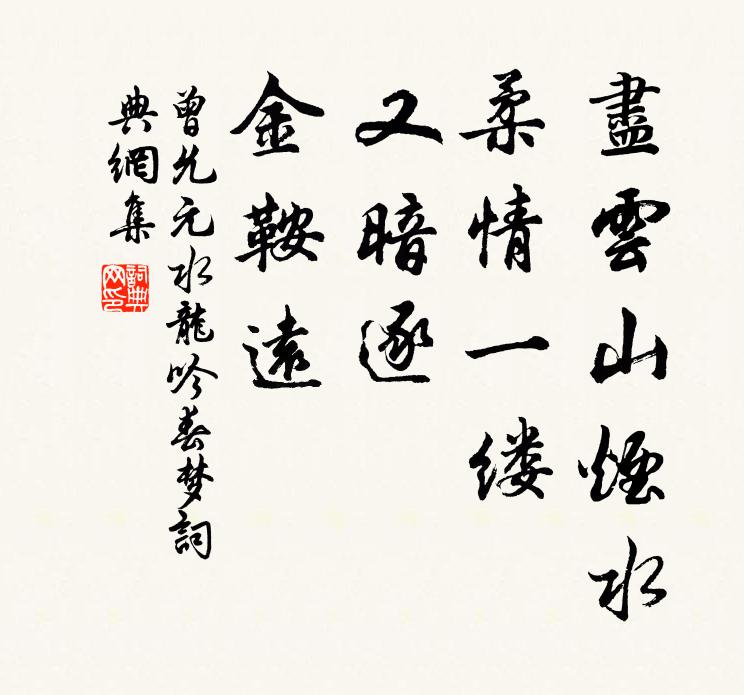 盡雲山煙水
柔情一缕
又暗逐
金鞍遠
曾允元水龍吟春梦詞
典網集
詞典網印